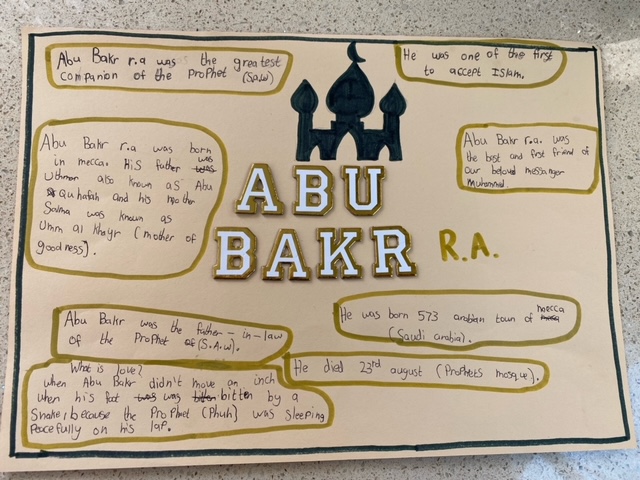 Abu Bakr r.a was the greatest
companion of the Prophet (Saw)
He was one of the first
to accept Islam.
Abu Bakr r.a was born
in mecca. His father was
Uthman also known as Abu
Quhafah and his mother
Salma was known as
Umm al khayr (mother of
goodness).
Abu Bakr r.a. was
the best and first friend of
our beloved messanger
Muhammad.
ABU
BAKR R.A.
Abu Bakr was the father-in-law
of the Prophet (S.A.w).
He was born 573 arabian town of mecca
(Saudi arabia).
He died 23rd august (Prophets mosque).
What is love?
when Abu Bakr didn't move an inch
when his foot was bitten by a
Snake, because the Prophet (Pbuh) was sleeping
Peacefully on his lap.